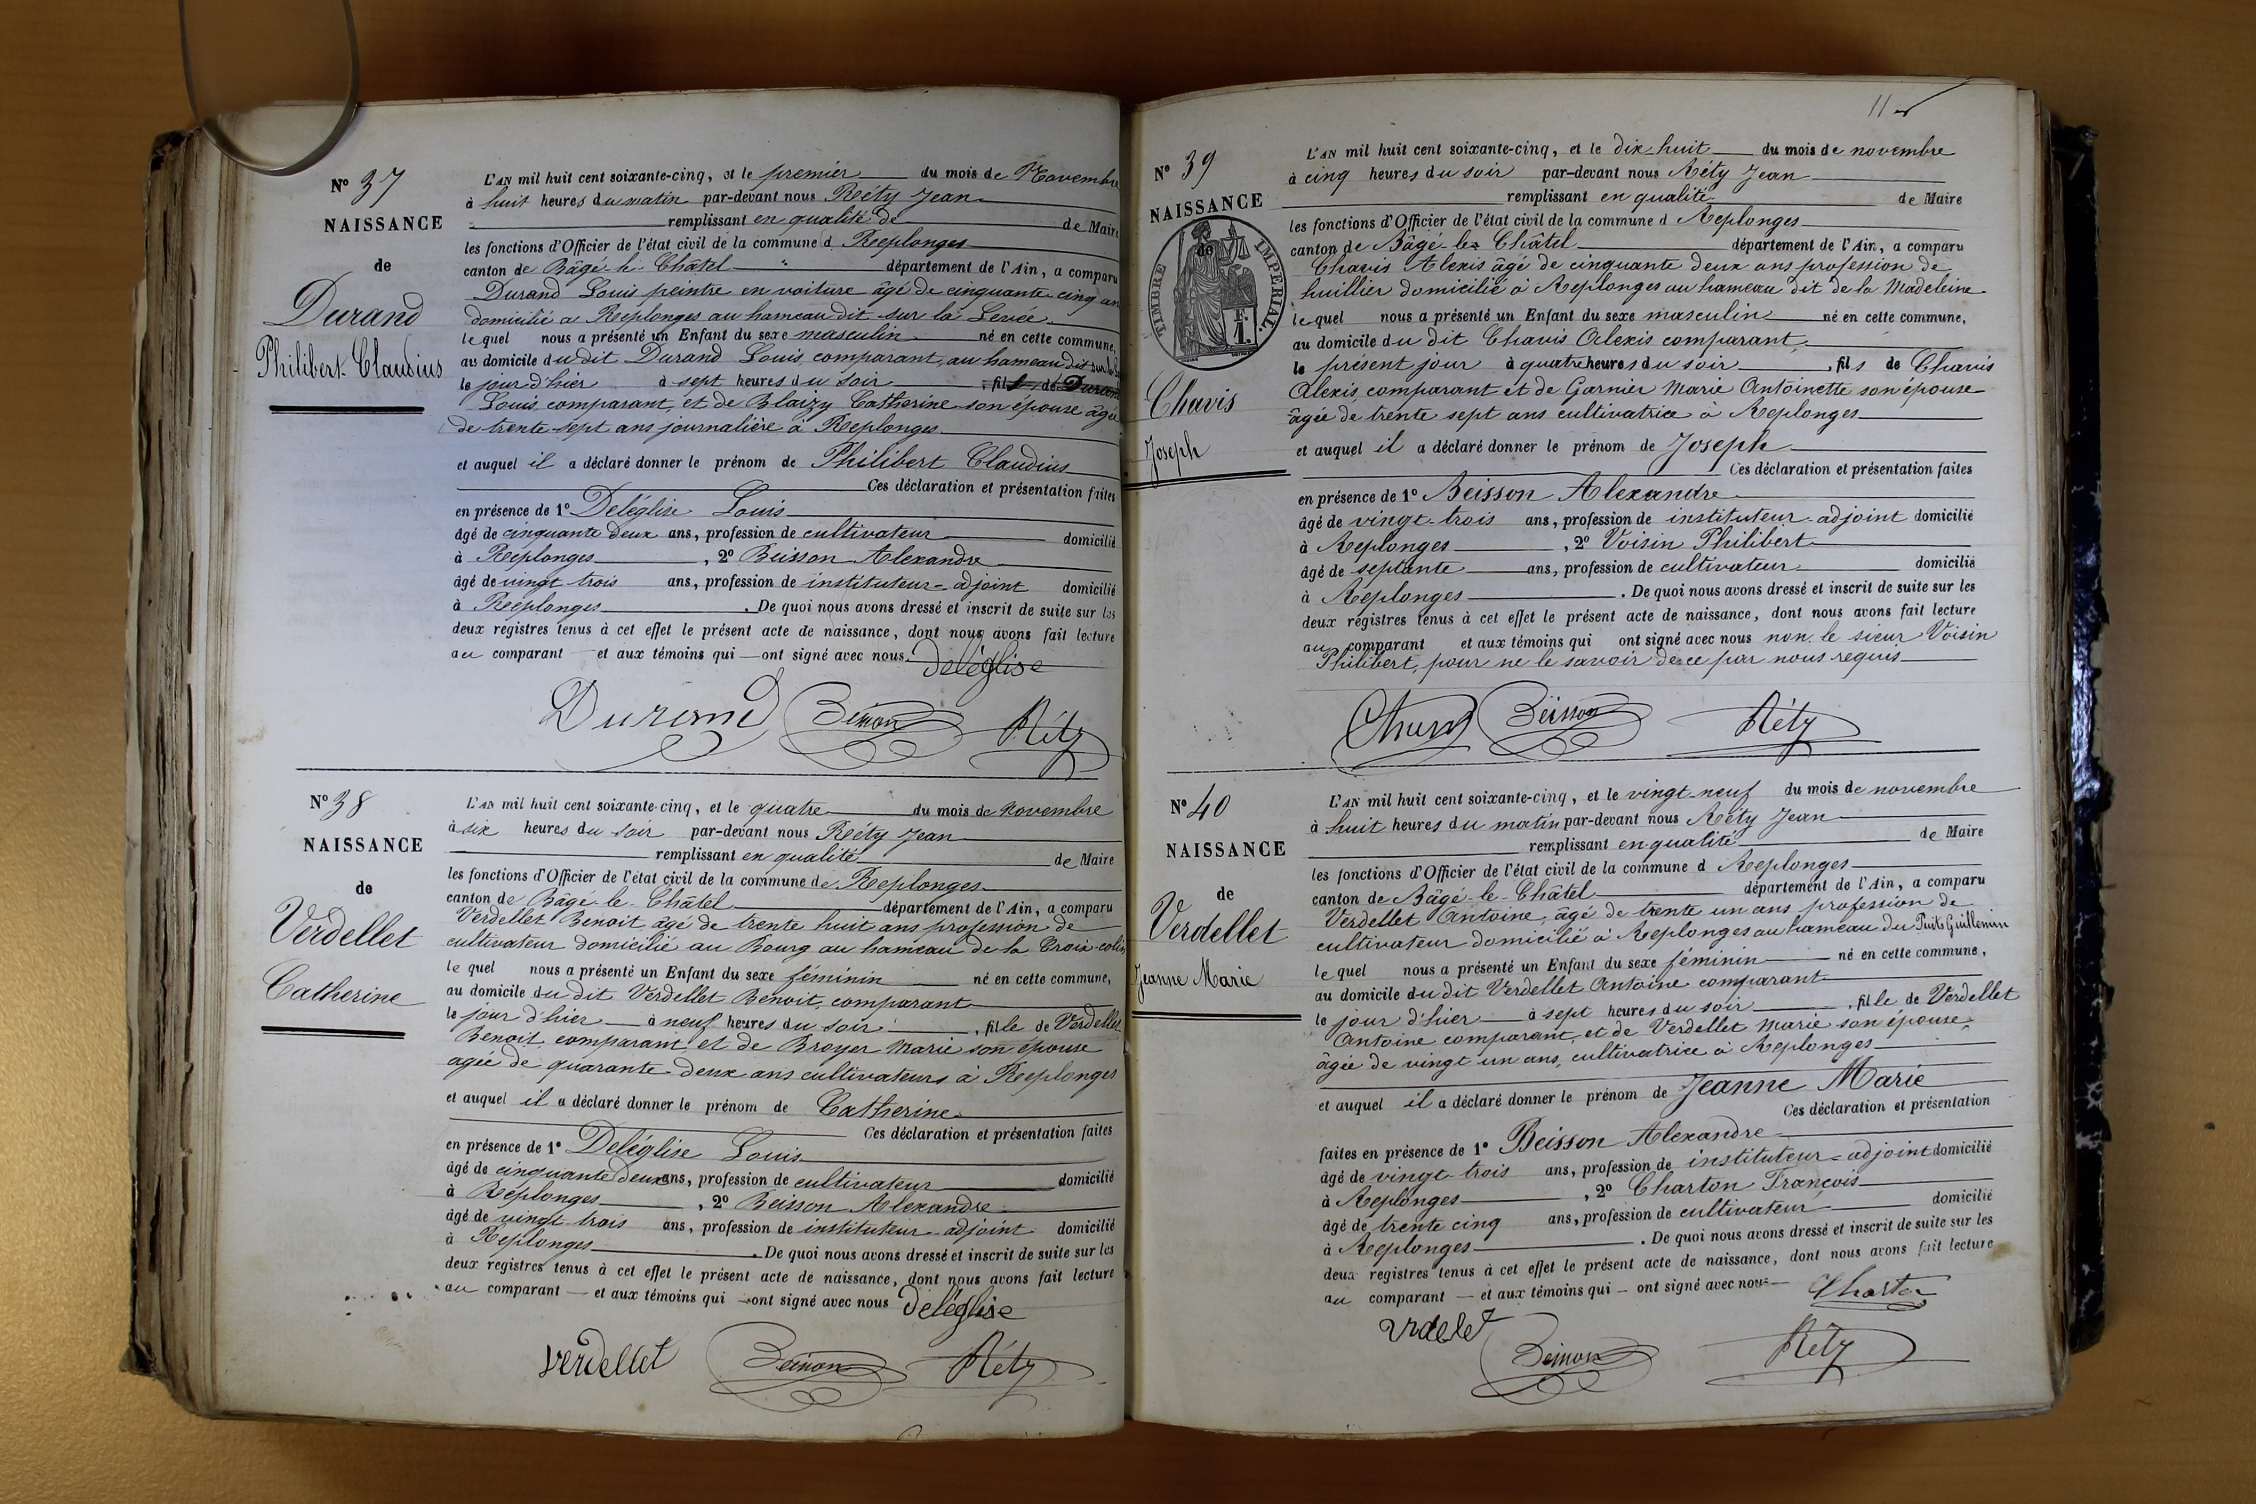 N° 37
NAISSANCE
de
Durand
Philibert Claudius
L'AN mil huit cent soixante-cinq, et le premier du mois de Novembre
à huit heures du matin par-devant nous Réty Jean
remplissant en qualité de de Maire
les fonctions d'Officier de l'état civil de la commune d Replonges
canton de Bâgé-le-Châtel département de l'Ain, a comparu
Durand Louis peintre en voiture âgé de cinquante cinq ans
domicilié à Replonges au hameau dit sur la Levée
le quel nous a présenté un Enfant du sexe masculin né en cette commune,
au domicile du dit Durand Louis comparant, au hameau dit sur la
le jour d'hier à sept heures du soir, fils de Durand
Louis comparant, et de Blaizy Catherine son épouse âgée
de trente sept ans journalière à Replonges
et auquel il a déclaré donner le prénom de Philibert Claudius
Ces déclaration et présentation faites
en présence de 1° Deléglise Louis
âgé de cinquante deux ans, profession de cultivateur domicilié
à Replonges, 2° Beisson Alexandre
âgé de vingt trois ans, profession de instituteur-adjoint domicilié
à Replonges. De quoi nous avons dressé et inscrit de suite sur les
deux registres tenus à cet effet le présent acte de naissance, dont nous avons fait lecture
au comparant et aux témoins qui ont signé avec nous.
deléglise
Durand Beisson Réty
N° 38
NAISSANCE
de
Verdellet
Catherine
L'AN mil huit cent soixante-cinq, et le quatre du mois de Novembre
à six heures du soir par-devant nous Réty Jean
remplissant en qualité de Maire
les fonctions d'Officier de l'état civil de la commune de Replonges
canton de Bâgé-le-Châtel département de l'Ain, a comparu
Verdellet Benoit, âgé de trente huit ans profession de
cultivateur domicilié au Bourg au hameau de la Croix-colin
le quel nous a présenté un Enfant du sexe féminin né en cette commune,
au domicile du dit Verdellet Benoit, comparant
le jour d'hier à neuf heures du soir, fille de Verdellet
Benoit comparant, et de Broyer Marie son épouse
agée de quarante-deux ans cultivateurs à Replonges
et auquel il a déclaré donner le prénom de Catherine
Ces déclaration et présentation faites
en présence de 1° Deléglise Louis
âgé de cinquante deux ans, profession de cultivateur domicilié
à Replonges, 2° Beisson Alexandre
âgé de vingt trois ans, profession de instituteur-adjoint domicilié
à Replonges. De quoi nous avons dressé et inscrit de suite sur les
deux registres tenus à cet effet le présent acte de naissance, dont nous avons fait lecture
au comparant — et aux témoins qui — ont signé avec nous
deléglise
verdellet Beisson Réty
11
N° 39
NAISSANCE
de
TIMBRE IMPERIAL.
1 F.
Chavis
Joseph
L'AN mil huit cent soixante-cinq, et le dix-huit du mois de novembre
à cinq heures du soir par-devant nous Réty Jean
remplissant en qualité de Maire
les fonctions d'Officier de l'état civil de la commune d Replonges
canton de Bâgé-le-Châtel département de l'Ain, a comparu
Chavis Alexis âgé de cinquante deux ans profession de
huillier domicilié à Replonges au hameau dit de la Madeleine
le quel nous a présenté un Enfant du sexe masculin né en cette commune,
au domicile du dit Chavis Alexis comparant,
le présent jour à quatre heures du soir, fils de Chavis
Alexis, comparant et de Garnier Marie Antoinette son épouse
âgée de trente sept ans cultivatrice à Replonges
et auquel il a déclaré donner le prénom de Joseph
Ces déclaration et présentation faites
en présence de 1° Beisson Alexandre
âgé de vingt-trois ans, profession de instituteur-adjoint domicilié
à Replonges, 2° Voisin Philibert
âgé de septante ans, profession de cultivateur domicilié
à Replonges. De quoi nous avons dressé et inscrit de suite sur les
deux registres tenus à cet effet le présent acte de naissance, dont nous avons fait lecture
au comparant et aux témoins qui ont signé avec nous non le sieur Voisin
Philibert, pour ne le savoir de ce par nous requis
Beisson Réty
N° 40
NAISSANCE
de
Verdellet
Jeanne Marie
L'AN mil huit cent soixante-cinq, et le vingt-neuf du mois de novembre
à huit heures du matin par-devant nous Réty Jean
remplissant en qualité de Maire
les fonctions d'Officier de l'état civil de la commune d Replonges
canton de Bâgé-le-Châtel département de l'Ain, a comparu
Verdellet Antoine, âgé de trente un ans profession de
cultivateur domicilié à Replonges au hameau du Puits Guillemin
le quel nous a présenté un Enfant du sexe féminin né en cette commune,
au domicile du dit Verdellet Antoine comparant
le jour d'hier à sept heures du soir, fille de Verdellet
Antoine comparant, et de Verdellet Marie son épouse,
âgée de vingt un ans, cultivatrice à Replonges
et auquel il a déclaré donner le prénom de Jeanne Marie
Ces déclaration et présentation
faites en présence de 1° Beisson Alexandre
âgé de vingt trois ans, profession de instituteur-adjoint domicilié
à Replonges, 2° Charton François
âgé de trente cinq ans, profession de cultivateur domicilié
à Replonges. De quoi nous avons dressé et inscrit de suite sur les
deux registres tenus à cet effet le présent acte de naissance, dont nous avons fait lecture
au comparant — et aux témoins qui — ont signé avec nous —
Charton
Beisson Réty